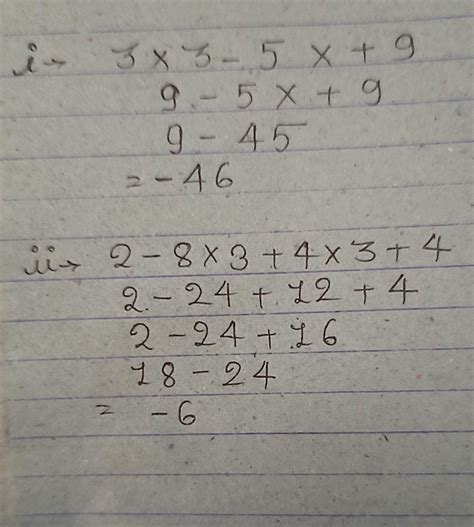 i→ 3 × 3 - 5 × + 9
9 - 5 × + 9
9 - 45
= - 46
ii→ 2 - 8 × 3 + 4 × 3 + 4
2 - 24 + 12 + 4
2 - 24 + 16
18 - 24
= - 6